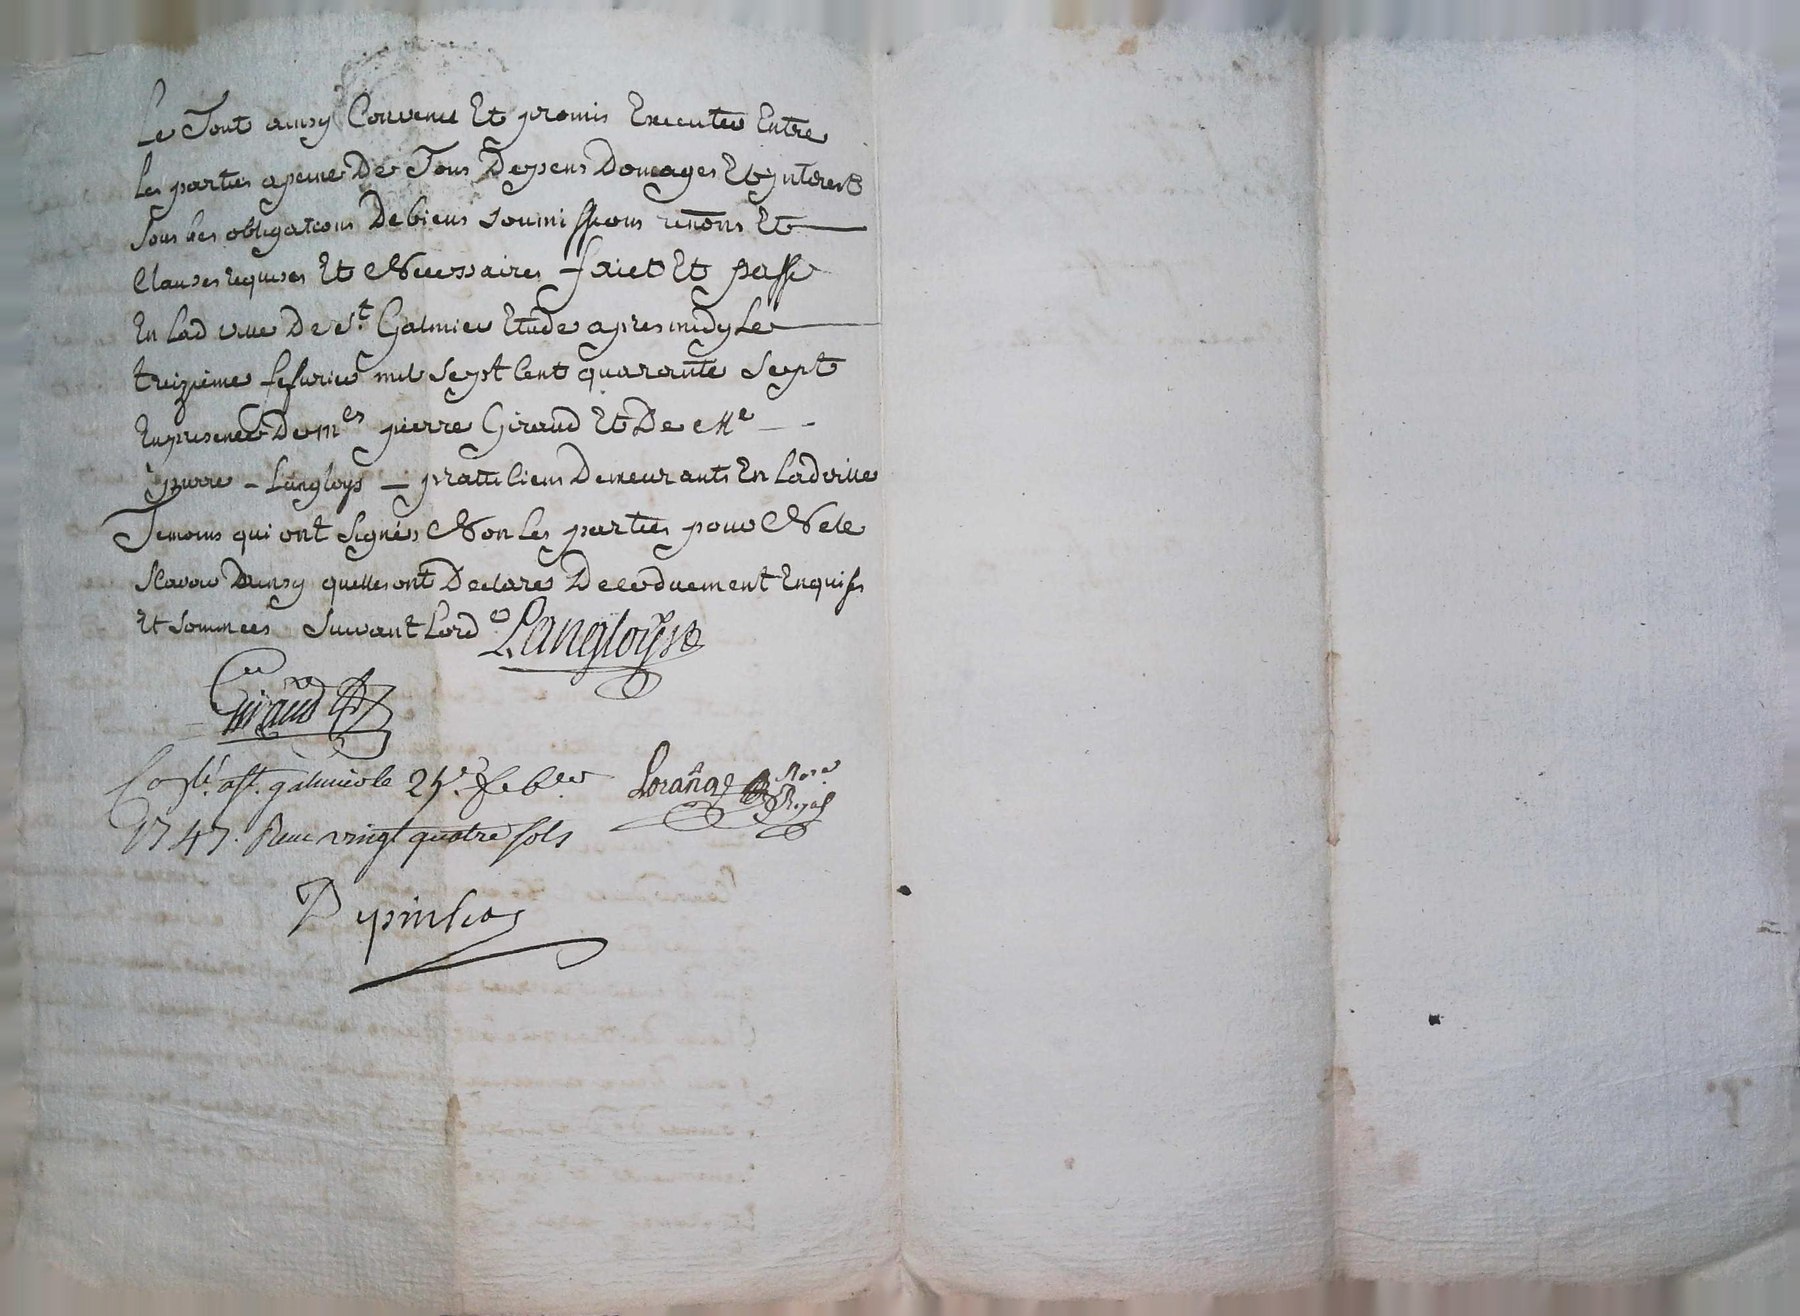 Le Tout ainsy Convenu Et promis Executer Entre
les parties apeine De Tous Depens Domages Et ynterest
sous les obligations De biens soumissions renons Et
Clauses requises Et Necessaires faict Et passe
En lad ville De St Galmier Etude apres midy Le
treizieme febvrier mil sept Cent quarante sept
En presence De mes pierre Giraud Et De Me
pierre - Langloys - pratticiens Demeurants En Ladville
Temoins qui ont signés Non les parties pour Ne le
scavoir Dainsy quelles ont Declarés De ce duement Enquises
Et sommées suivant Lorde Langloys
Giraud
Coslé a St. galmier le 25e. febver Lorange Nore
1747. Recu vingt quatre sols Royal